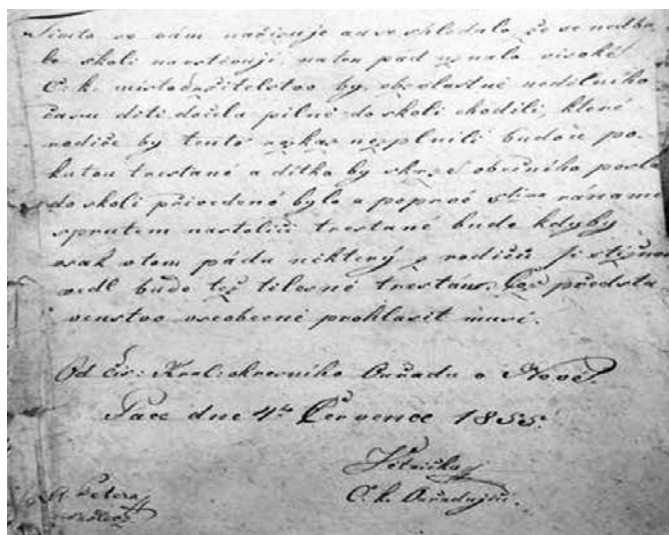 Timto se vám nařizuje aa se shledalo, že se nedba
do skoli navstivují, na ten pád uznalo visoké
C: k. místodržitelstvo by obvzlastně nedělniho
času diti docela pilně do skoli chodili, které
rodiče by tento roskas ne plnili budou po-
kutou trestané a ditko by skrzež obecniho posla
do skoli přivedené bylo a poprvé ránami
sprutem na stolici trestané bude kdyby
wsak v tom pádu některý z rodičů si stižnost
vedl bude též tilesně trestán. Což předsta
venstvo vseobecně prohlasit musí.
Od Cís: Král: okresniho Ouřadu v Nové
Pace dne 4ho Července 1855.
C. k. Ouřadujicí.
A. Petera